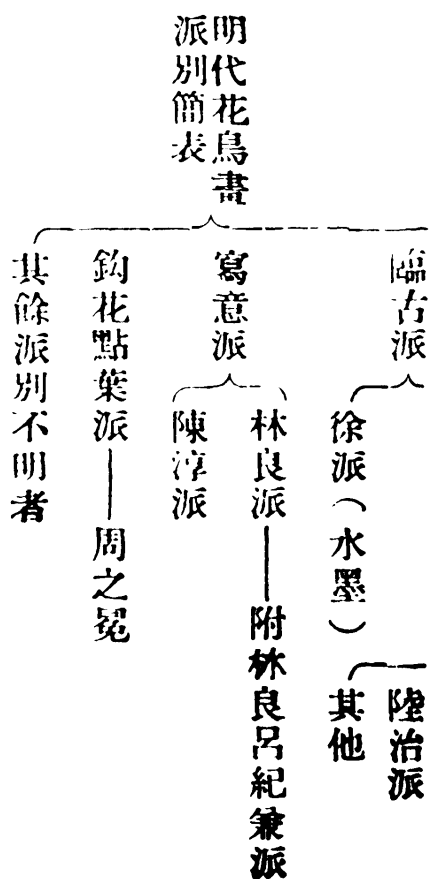 明代花鳥畫
派別簡表
臨古派
徐派(水墨)
陸治派
其他
寫意派
林良派——附林良呂紀兼派
陳淳派
鈎花點葉派——周之冕
其餘派別不明者